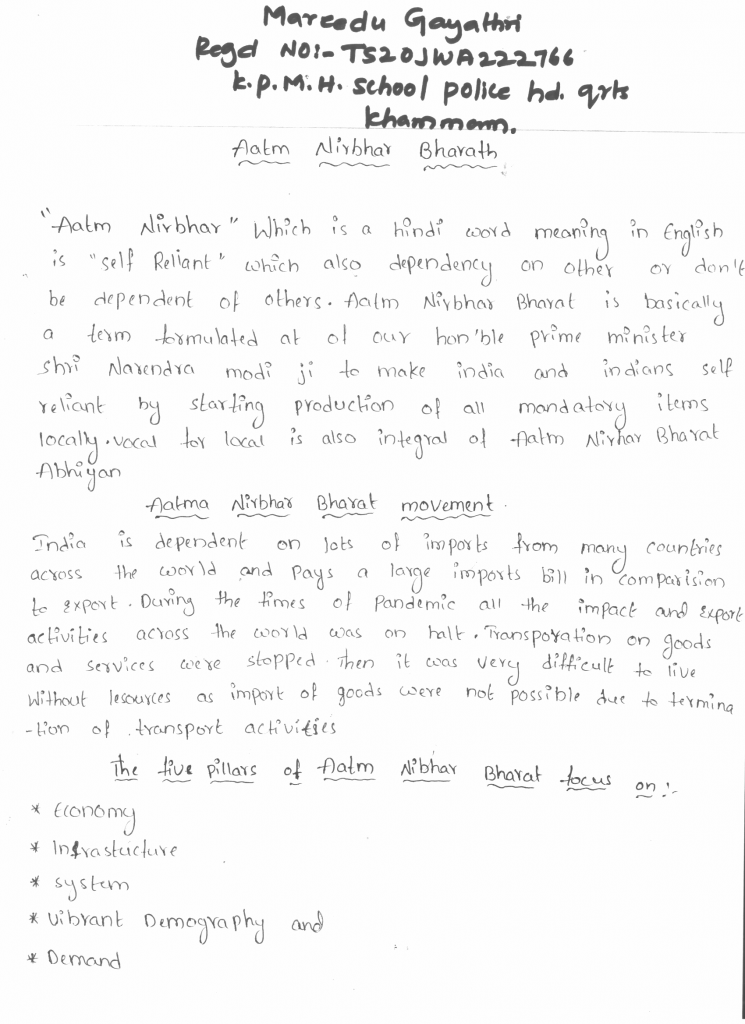 Mareedu Gayathri
Regd NO:- TS20JWA222766
K.P.M.H. School police hd. qrts
Khammam.
Aatm Nirbhar Bharath
"Aatm Nirbhar" Which is a hindi word meaning in English
is "self Reliant" which also dependency on other or don't
be dependent of others. Aatm Nirbhar Bharat is basically
a term formulated at of our hon'ble prime minister
Shri Narendra modi ji to make india and indians self
reliant by starting production of all mandatory items
locally. vocal for local is also integral of Aatm Nirhar Bharat
Abhiyan
Aatma Nirbhar Bharat movement.
India is dependent on lots of imports from many countries
across the world and pays a large imports bill in comparision
to export. During the times of Pandemic all the impact and export
activities across the world was on halt. Transporation on goods
and services were stopped. Then it was very difficult to live
Without lesources as import of goods were not possible due to termina
-tion of transport activities
The five pillars of Aatm Nibhar Bharat focus on :-
* Economy
* Infrastucture
* system
* Vibrant Demography and
* Demand